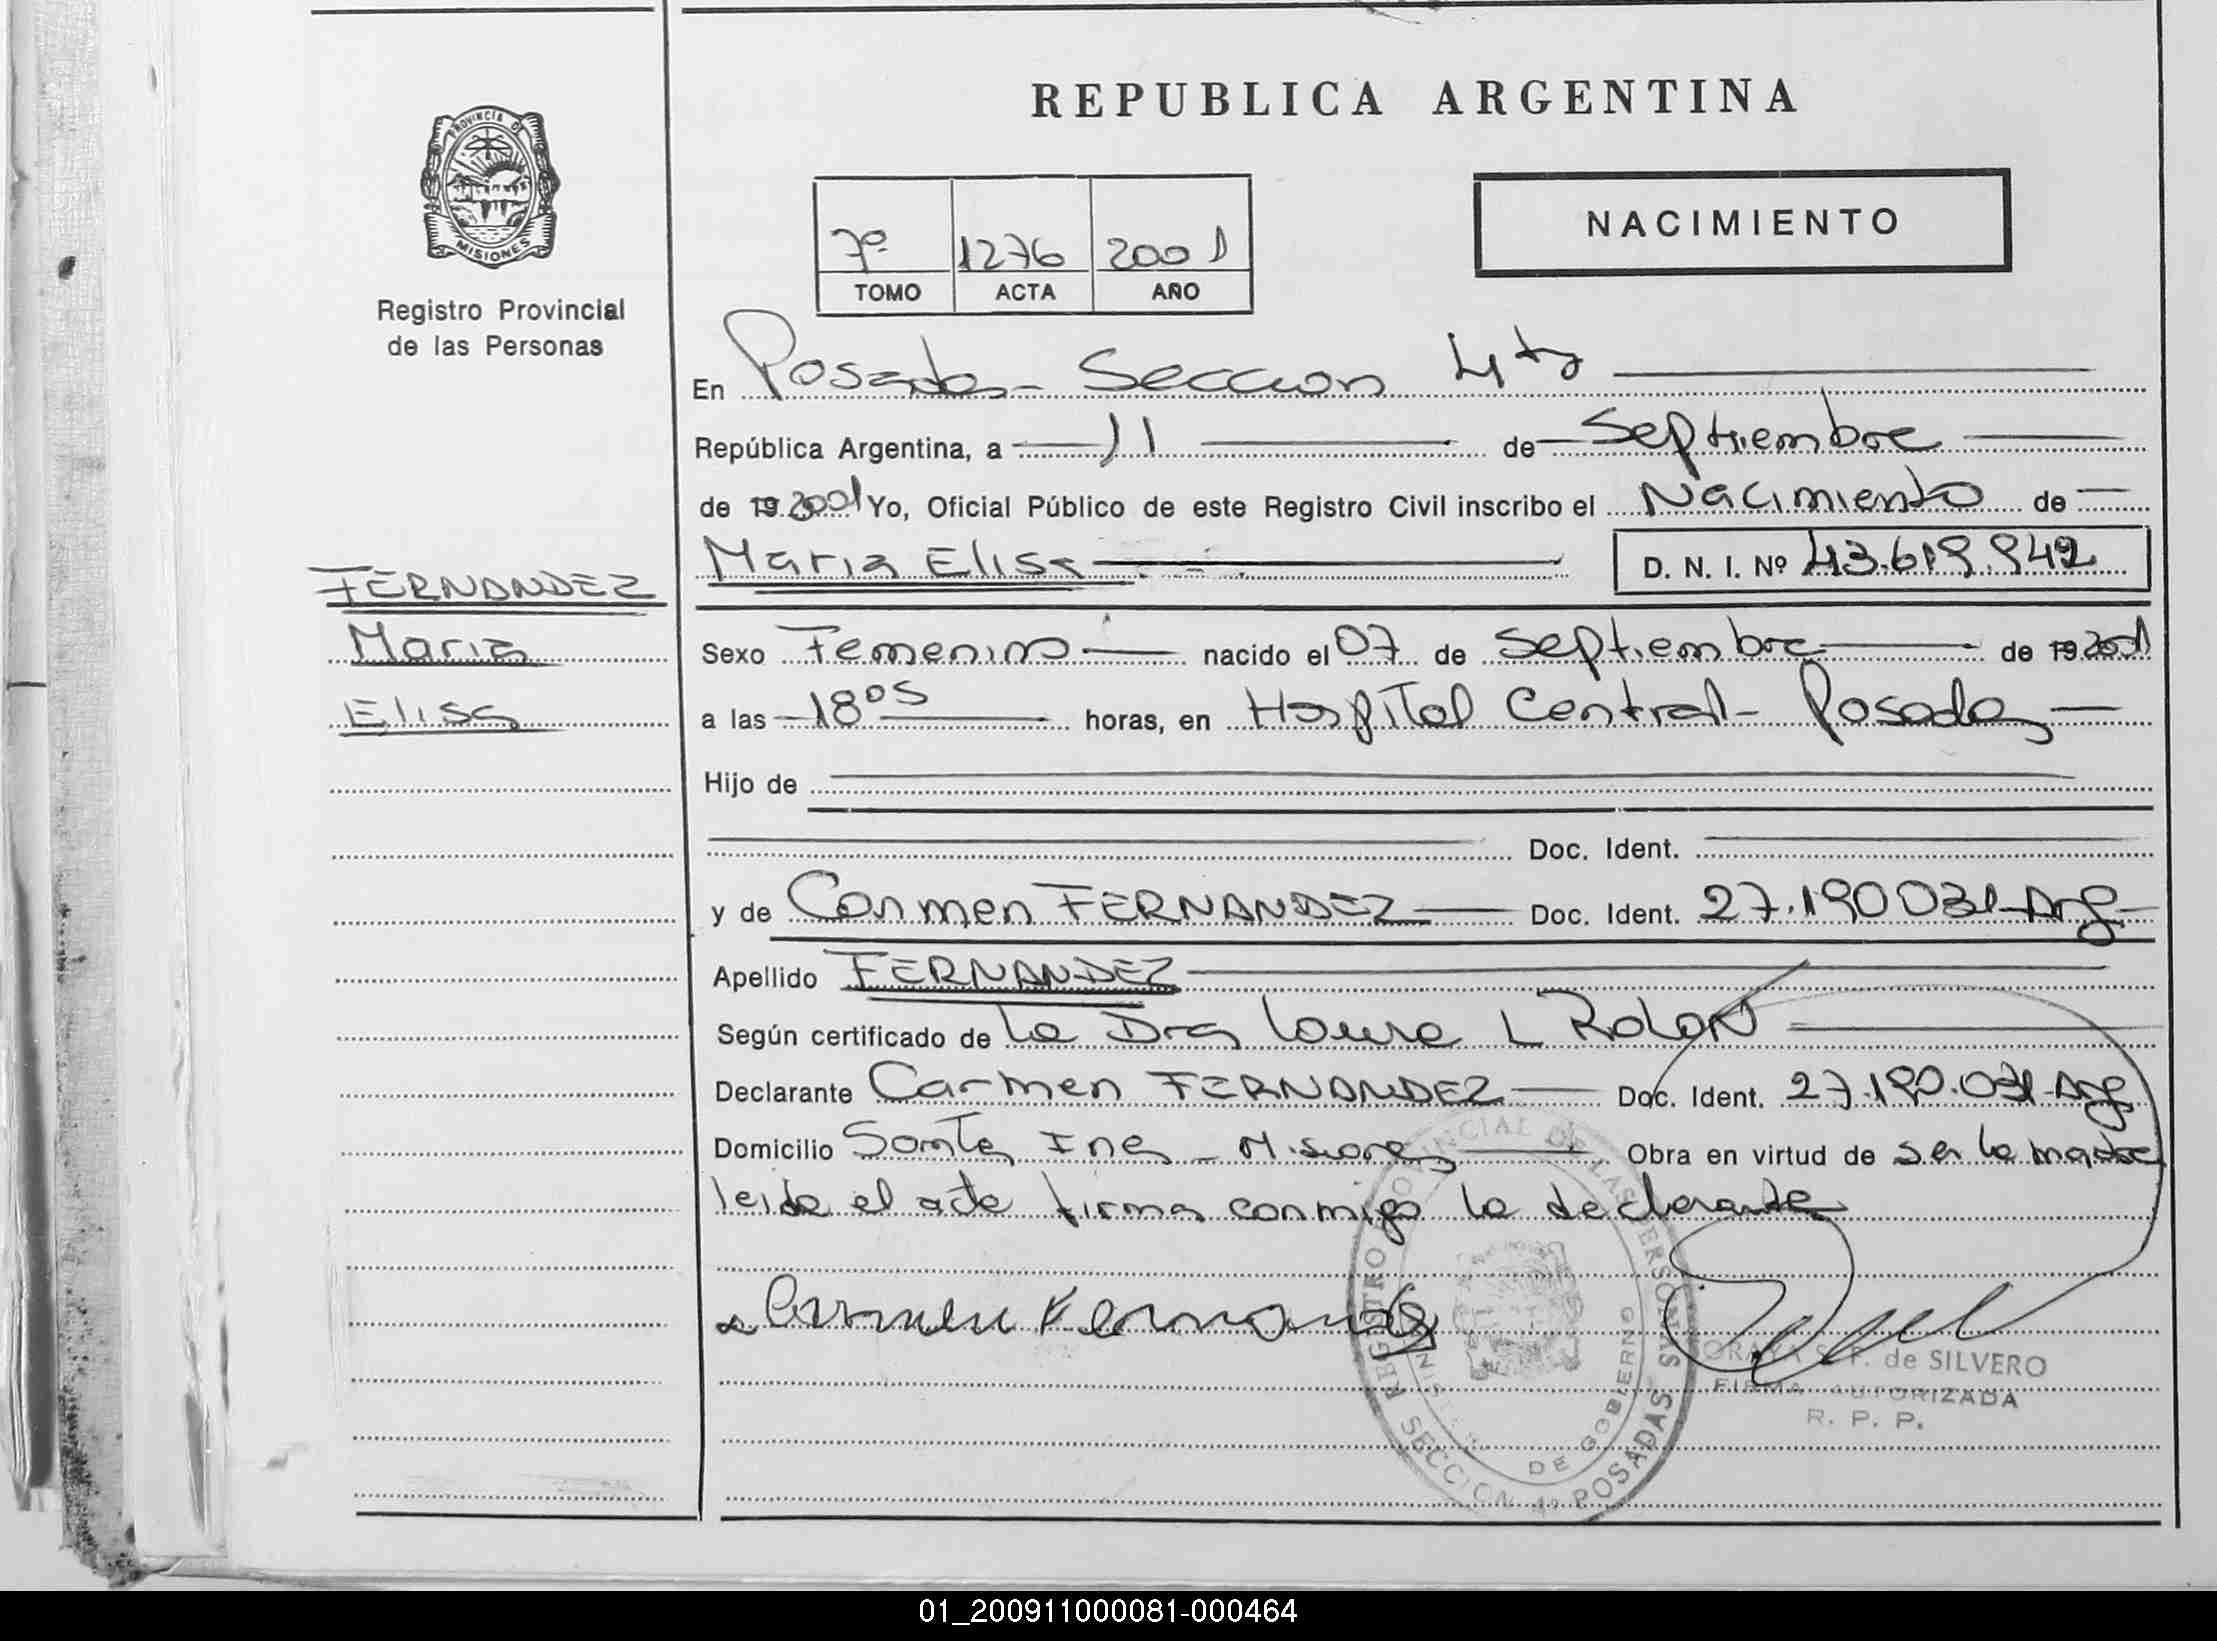 REPUBLICA ARGENTINA
PROVINCIA DE
MISIONES
Registro Provincial
de las Personas
7º 1276 2001
TOMO ACTA AÑO
NACIMIENTO
En Posadas - Seccion 4ta
República Argentina, a 11 de Septiembre
de 19 2001 Yo, Oficial Público de este Registro Civil inscribo el Nacimiento de
Maria Elisa D. N. I. Nº 43.619.942
FERNANDEZ
Maria
Elisa
Sexo Femenino nacido el 07 de Septiembre de 19 2001
a las 18 05 horas, en Hospital Central - Posadas
Hijo de
Doc. Ident.
y de Carmen FERNANDEZ Doc. Ident. 27.190.031 - Arg
Apellido FERNANDEZ
Según certificado de la Dra Laura L Rolon
Declarante Carmen FERNANDEZ Doc. Ident. 27.190.031 - Arg
Domicilio Santa Ines - Misiones Obra en virtud de ser la madre
leida el acta firma conmigo la declarante
Carmen Fernandez
REGISTRO PROVINCIAL DE LAS PERSONAS
SECCION 4ª POSADAS
DE GOBIERNO
de SILVERO
FIRMA AUTORIZADA
R. P. P.
01_200911000081-000464